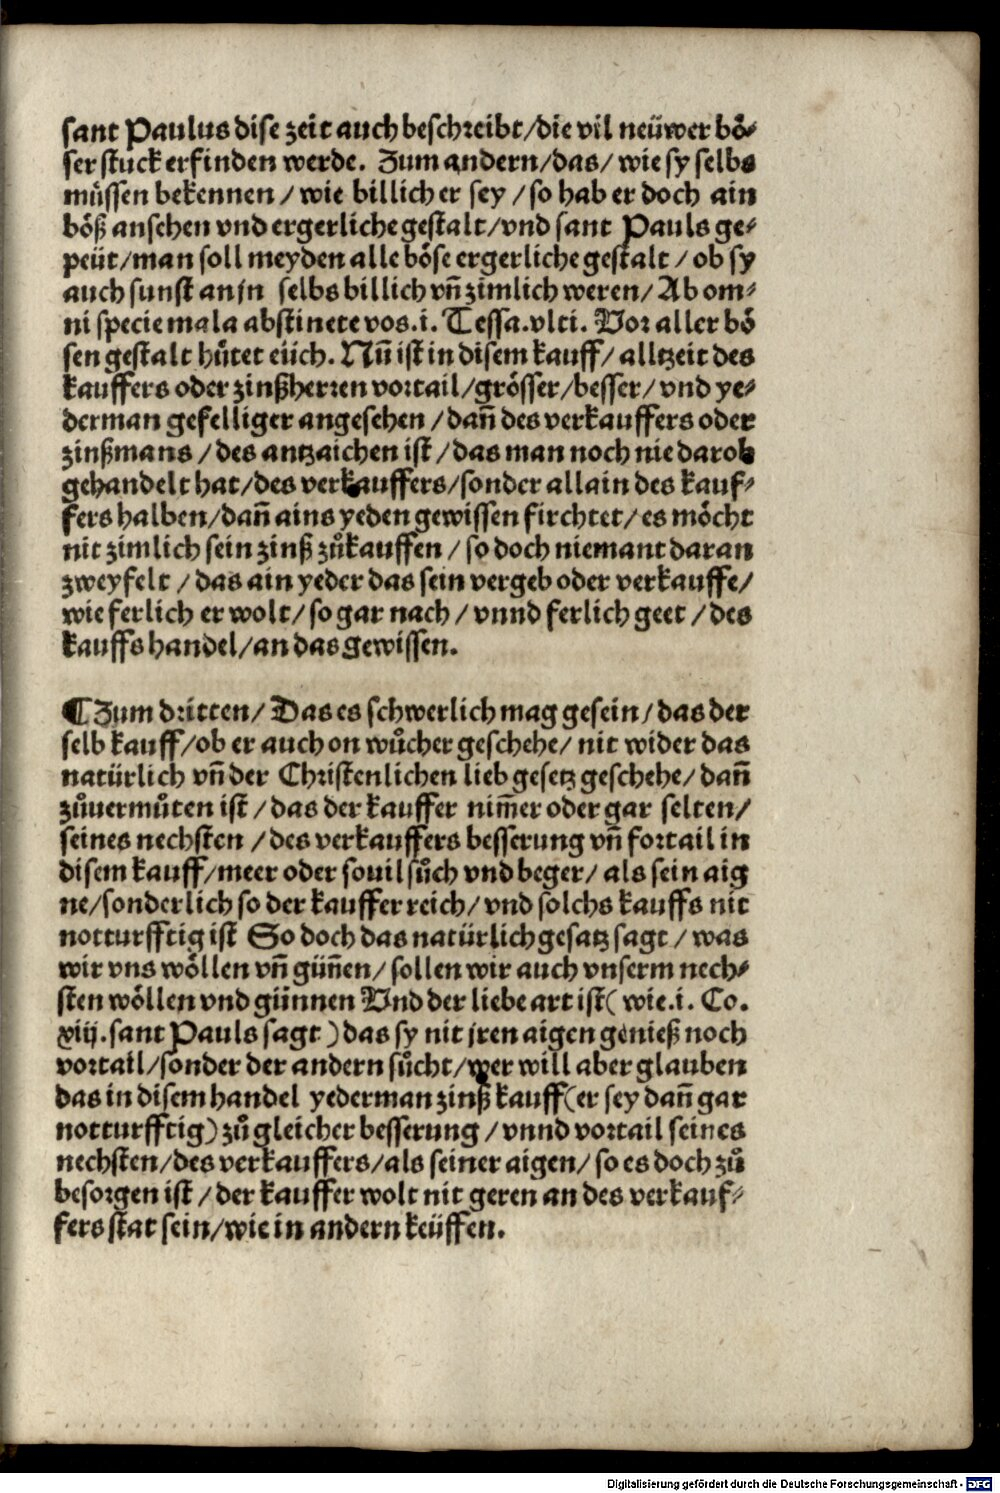 sant Paulus dise zeit auch beschreibt/die vil neüwer bö⸗
ser stuck erfinden werde. Zum andern/das/ wie sy selbs
müssen bekennen / wie billich er sey / so hab er doch ain
böß ansehen vnd ergerliche gestalt/vnd sant Pauls ge⸗
peüt/man soll meyden alle böse ergerliche gestalt / ob sy
auch sunst an jn selbs billich vñ zimlich weren/ Ab om⸗
ni specie mala abstinete vos.i. Tessa.vlti. Vor aller bö
sen gestalt hütet eüch. Nũ ist in disem kauff/ alltzeit des
kauffers oder zinßherren vortail/grösser/besser/ vnd ye⸗
derman gefelliger angesehen / dañ des verkauffers oder
zinßmans /des antzaichen ist /das man noch nie darob
gehandelt hat/des verkauffers/sonder allain des kauf⸗
fers halben/dañ ains yeden gewissen firchtet/ es möcht
nit zimlich sein zinß zůkauffen / so doch niemant daran
zweyfelt / das ain yeder das sein vergeb oder verkauffe/
wie ferlich er wolt/ so gar nach / vnnd ferlich geet / des
kauffs handel/an das gewissen.

¶ Zum dritten/ Das es schwerlich mag gesein/ das der
selb kauff/ob er auch on wůcher geschehe/ nit wider das
natürlich vñ der Christenlichen lieb gesetz geschehe/ dañ
zůuermůten ist /das der kauffer nim̃er oder gar selten/
seines nechsten /des verkauffers besserung vñ fortail in
disem kauff/meer oder souil sůch vnd beger/ als sein aig
ne/sonderlich so der kauffer reich/ vnd solchs kauffs nit
notturfftig ist So doch das natürlich gesatz sagt / was
wir vns wöllen vñ güñen/ sollen wir auch vnserm nech⸗
sten wöllen vnd günnen Vnd der liebe art ist( wie.i. Co.
xiij.sant Pauls sagt )das sy nit jren aigen genieß noch
vortail/sonder der andern sůcht/wer will aber glauben
das in disem handel yederman zinß kauff(er sey dañ gar
notturfftig)zů gleicher besserung /vnnd vortail seines
nechsten/des verkauffers/als seiner aigen/ so es doch zů
besorgen ist /der kauffer wolt nit geren an des verkauf⸗
fers stat sein/wie in andern keüffen.
Digitalisierung gefördert durch die Deutsche Forschungsgemeinschaft - DFG